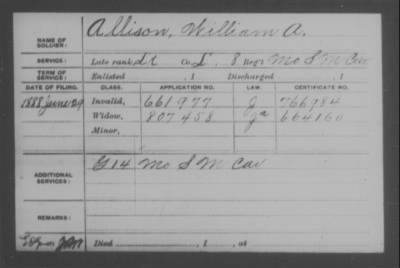 NAME OF SOLDIER: Allison, William A.
SERVICE: Late rank Lt Co. I, 8 Reg't Mo S M Cav
TERM OF SERVICE: Enlisted , 1 Discharged , 1
DATE OF FILING. CLASS. APPLICATION NO. LAW. CERTIFICATE NO.
1888 June 29 Invalid, 661977 J 766984
Widow, 807458 Ja 664160
Minor,
ADDITIONAL SERVICES: G 14 Mo S M Cav
REMARKS:
Died , 1 , at